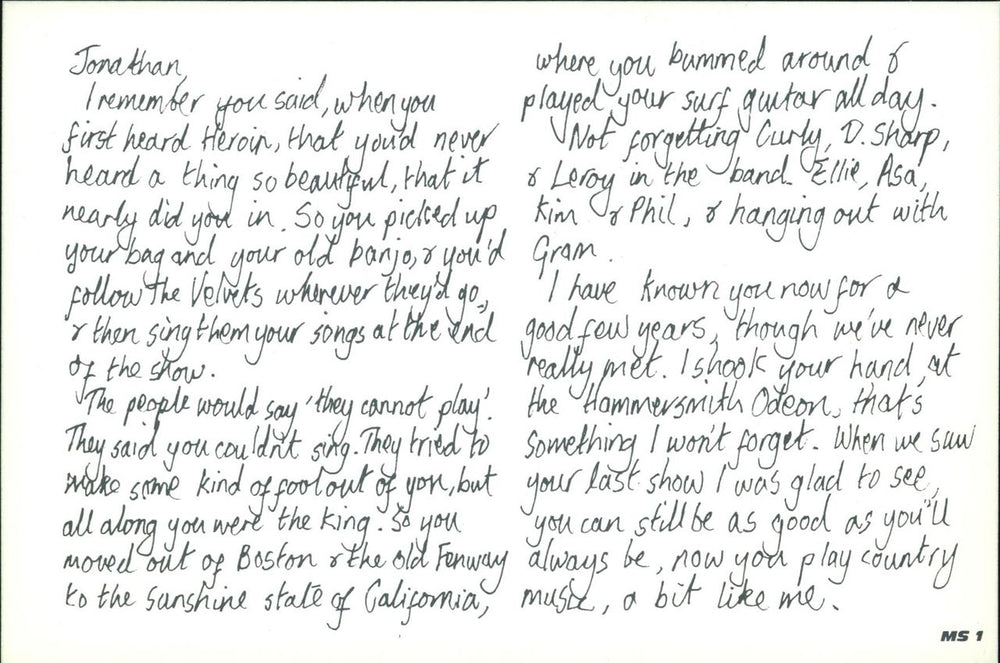 Jonathan,
I remember you said, when you
first heard Heroin, that you'd never
heard a thing so beautiful, that it
nearly did you in. So you picked up
your bag and your old banjo, & you'd
follow the Velvets wherever they'd go,
& then sing them your songs at the end
of the show.
The people would say 'they cannot play'.
They said you couldn't sing. They tried to
make some kind of fool out of you, but
all along you were the king. So you
moved out of Boston & the old Fenway
to the sunshine state of California,
where you bummed around &
played your surf guitar all day.
Not forgetting Curly, D. Sharp,
& Leroy in the band. Ellie, Asa,
Kim & Phil, & hanging out with
Gram.
I have known you now for a
good few years, though we've never
really met. I shook your hand, at
the Hammersmith Odeon, that's
something I won't forget. When we saw
your last show I was glad to see,
you can still be as good as you'll
always be, now you play country
music, a bit like me.
MS 1